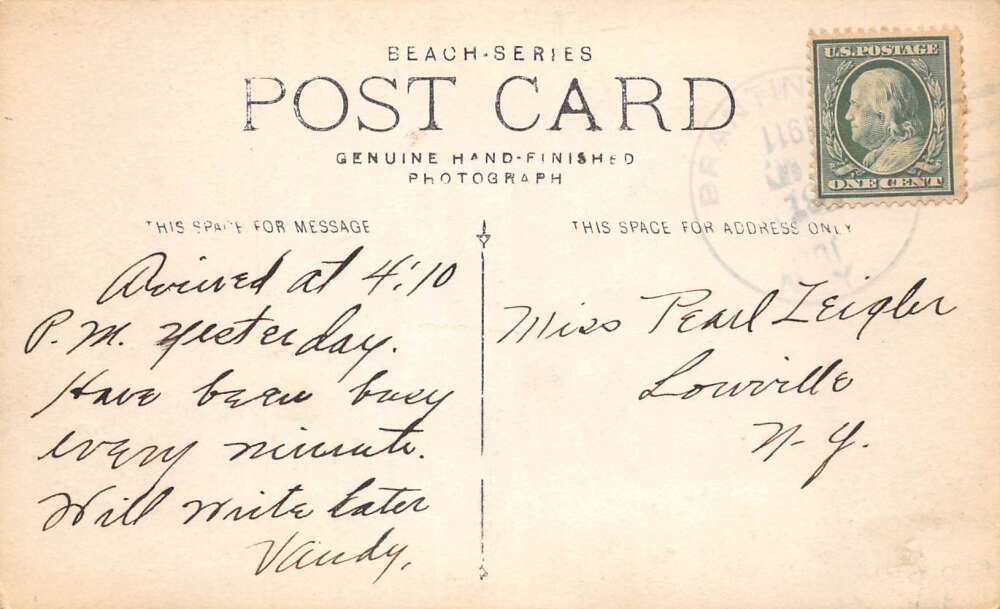 BEACH-SERIES
POST CARD
GENUINE HAND-FINISHED
PHOTOGRAPH
U.S. POSTAGE
ONE CENT
1911
THIS SPACE FOR MESSAGE
THIS SPACE FOR ADDRESS ONLY
Arrived at 4:10
P.M. Yesterday.
Have been busy
every minute.
Will write later
Vandy,
Miss Pearl Zeigler
Lowville
N-Y.